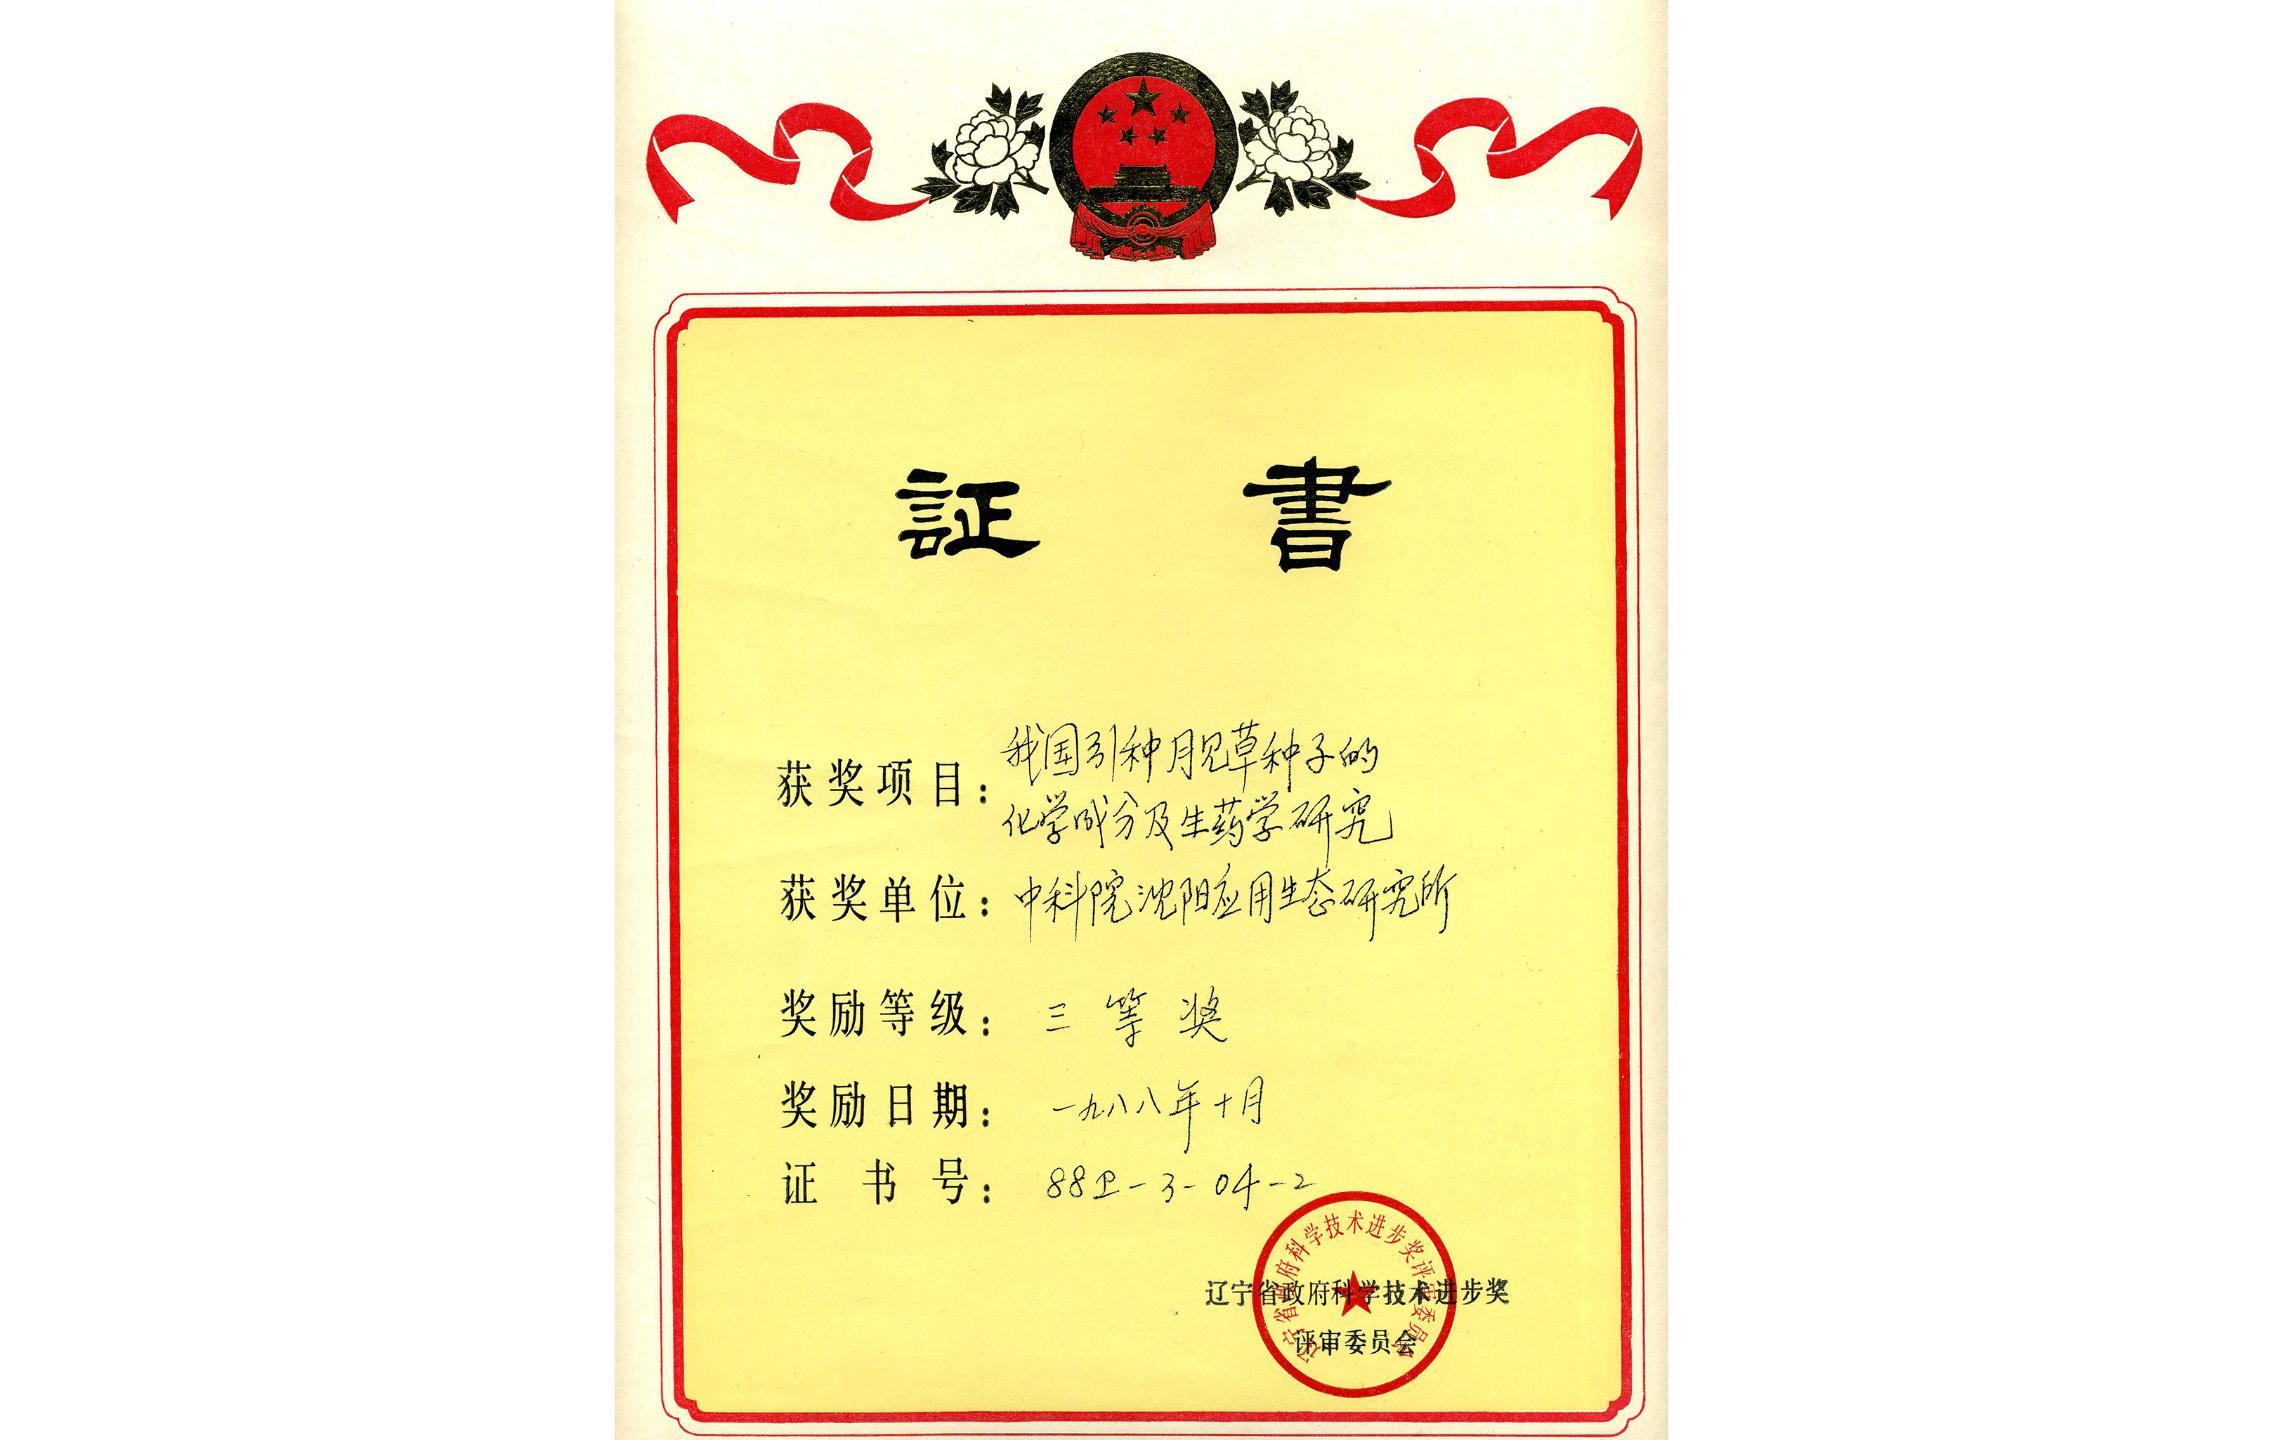 証書
获奖项目：我国引种月见草种子的
化学成分及生药学研究
获奖单位：中科院沈阳应用生态研究所
奖励等级：三等奖
奖励日期：一九八八年十月
证书号：88卫-3-04-2
辽宁省政府科学技术进步奖
评审委员会
辽宁省政府科学技术进步奖评审委员会